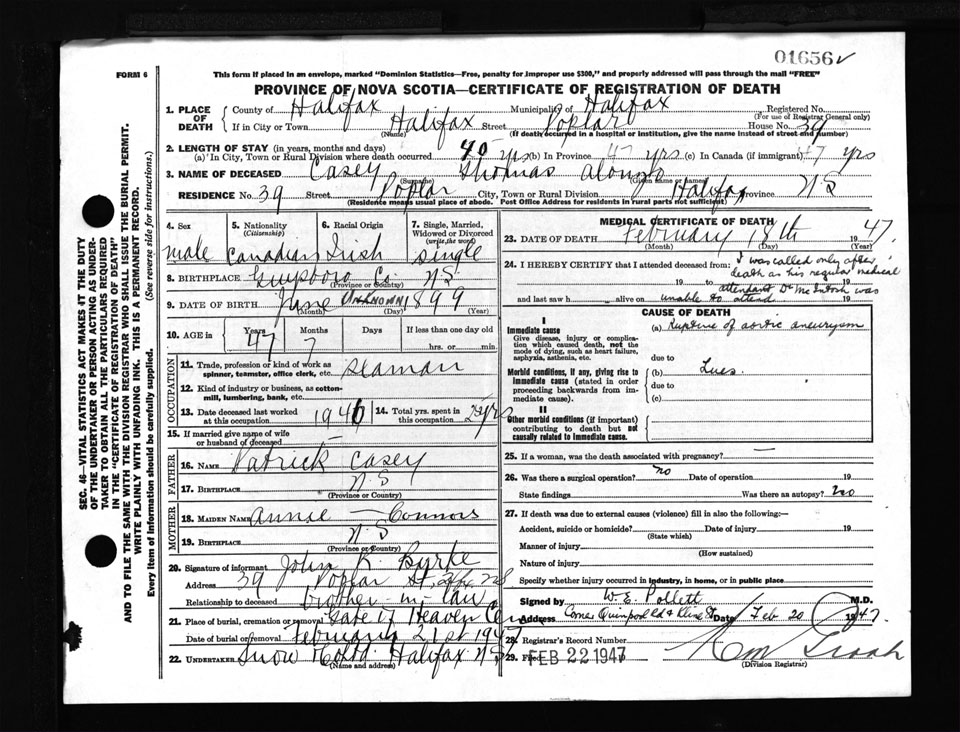 01656
FORM 6
This form if placed in an envelope, marked "Dominion Statistics—Free, penalty for improper use $300," and properly addressed will pass through the mail "FREE"
PROVINCE OF NOVA SCOTIA—CERTIFICATE OF REGISTRATION OF DEATH
1. PLACE OF DEATH County of Halifax Municipality of Halifax Registered No.
(For use of Registrar General only)
If in City or Town Halifax Street Poplar House No. 39
(Name) (If death occurred in a hospital or institution, give the name instead of street and number)
2. LENGTH OF STAY (in years, months and days)
(a) In City, Town or Rural Division where death occurred 40 yrs (b) In Province 47 yrs (c) In Canada (if immigrant) 47 yrs
3. NAME OF DECEASED Casey Thomas Alonzo
(Surname) (Given name or names)
RESIDENCE No. 39 Street Poplar City, Town or Rural Division Halifax Province N S
(Residence means usual place of abode. Post Office Address for residents in rural parts not sufficient)
4. Sex 5. Nationality (Citizenship) 6. Racial Origin 7. Single, Married, Widowed or Divorced (write the word)
male Canadian Irish single
8. BIRTHPLACE Guysboro Co. N S
9. DATE OF BIRTH June UNKNOWN 1899
(Month) (Day) (Year)
10. AGE in Years Months Days If less than one day old
47 7 hrs. or min.
OCCUPATION
11. Trade, profession or kind of work as spinner, teamster, office clerk, etc. Seaman
12. Kind of industry or business, as cotton-mill, lumbering, bank, etc.
13. Date deceased last worked at this occupation 1946 14. Total yrs. spent in this occupation yrs
15. If married give name of wife or husband of deceased
FATHER
16. NAME Patrick Casey
17. BIRTHPLACE N S
(Province or Country)
MOTHER
18. MAIDEN NAME Annie Connors
19. BIRTHPLACE N S
(Province or Country)
20. Signature of informant John R. Burke
Address 39 Poplar St.
Relationship to deceased brother-in-law
21. Place of burial, cremation or removal Gate of Heaven Cem
Date of burial or removal February 21st 1947
22. UNDERTAKER Snow & Co Ltd Halifax N S
(Name and address)
MEDICAL CERTIFICATE OF DEATH
23. DATE OF DEATH February 18th 1947
(Month) (Day) (Year)
24. I HEREBY CERTIFY that I attended deceased from: I was called only after
death as his regular medical
19 to 19
attendant Dr McIntosh was
and last saw h alive on unable to attend 19
CAUSE OF DEATH
I
Immediate cause (a) Rupture of aortic aneurysm
Give disease, injury or complication which caused death, not the mode of dying, such as heart failure, asphyxia, asthenia, etc.
due to
Morbid conditions, if any, giving rise to immediate cause (stated in order proceeding backwards from immediate cause). (b) Lues.
due to
(c)
II
Other morbid conditions (if important) contributing to death but not causally related to immediate cause.
25. If a woman, was the death associated with pregnancy? —
26. Was there a surgical operation? no Date of operation 19
State findings Was there an autopsy? no
27. If death was due to external causes (violence) fill in also the following:—
Accident, suicide or homicide? Date of injury 19
(State which)
Manner of injury
(How sustained)
Nature of injury
Specify whether injury occurred in industry, in home, or in public place
Signed by W. E. Pollett M.D.
Address Corner Quinpool Rd & St Date Feb 20 1947
28. Registrar's Record Number
29. Filed FEB 22 1947
(Division Registrar)
SEC. 46—VITAL STATISTICS ACT MAKES IT THE DUTY
OF THE UNDERTAKER OR PERSON ACTING AS UNDER-
TAKER TO OBTAIN ALL THE PARTICULARS REQUIRED
IN THE "CERTIFICATE OF REGISTRATION OF DEATH"
AND TO FILE THE SAME WITH THE DIVISION REGISTRAR WHO SHALL ISSUE THE BURIAL PERMIT.
WRITE PLAINLY WITH UNFADING INK. THIS IS A PERMANENT RECORD.
Every item of Information should be carefully supplied. (See reverse side for instructions.)